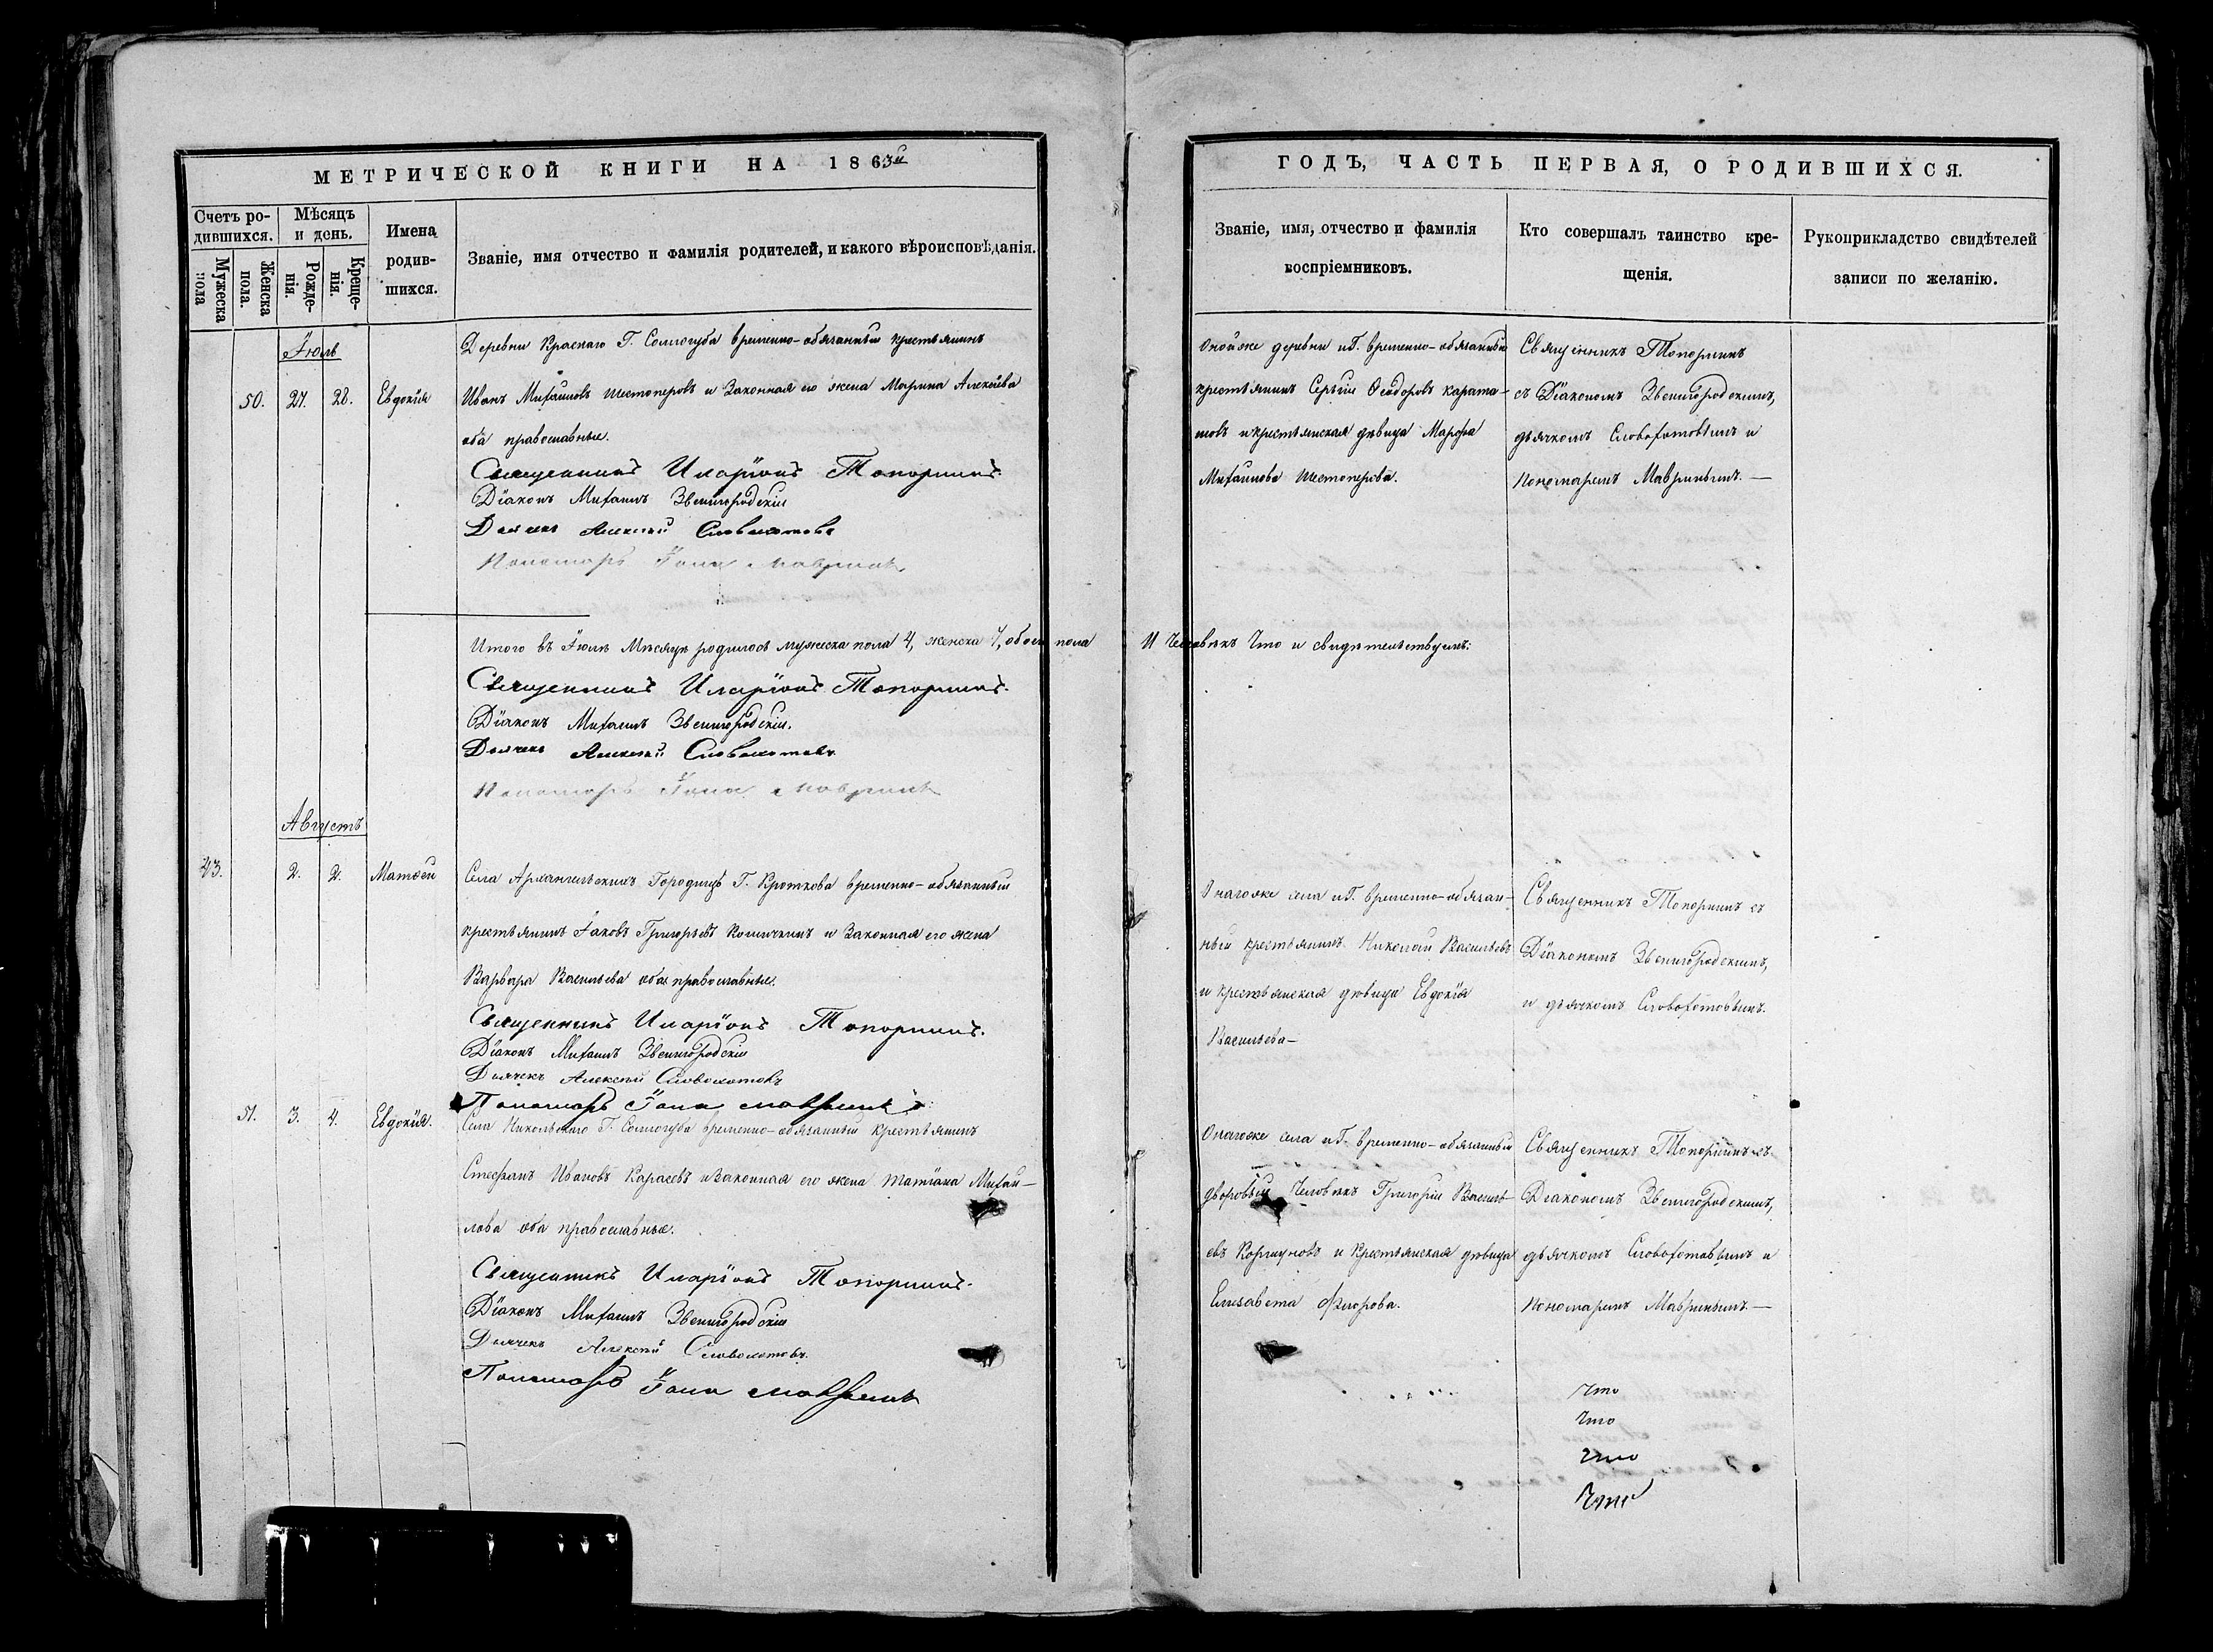 МЕТРИЧЕСКОЙ КНИГИ НА 1863й
Счетъ ро-
дившихся.
Мѣсяцъ
и день.
Имена
родив-
шихся.
Званіе, имя отчество и фамилія родителей, и какого вѣроисповѣданія.
Мужеска
пола
Женска
пола.
Рожде-
нія.
Креще-
нія.
Іюль
Деревни Краснаго Г. Сологуба временно-обязанный крестьянинъ
50. 27. 28. Евдокія Иванъ Михаиловъ Шестоперовъ и Законная его жена Марина Алексѣева
оба православные.
Священникъ Иларіонъ Топорнинъ
Діаконъ Михаилъ Звенигородскій
Дьячекъ Алексѣй Словохотовъ
Пономарь Іона Мавринъ
Итого въ Іюлѣ Мѣсяцѣ родилось мужеска пола 4, женска 7, обоего пола
Священникъ Иларіонъ Топорнинъ.
Діаконъ Михаилъ Звенигородскій.
Дьячекъ Алексѣй Словохотовъ.
Пономарь Іона Мавринъ
Августъ
43. 2. 2. Матвей Села Архангельскихъ Городищъ Г. Кроткова временно-обязанный
крестьянинъ Іаковъ Григорьевъ и Законная его жена
Варвара Васильева оба православные.
Священникъ Иларіонъ Топорнинъ.
Діаконъ Михаилъ Звенигородскій
Дьячекъ Алексѣй Словохотовъ
Пономарь Іона Мавринъ
51. 3. 4. Евдокія. Села Никольскаго Г. Сологуба временно-обязанный крестьянинъ
Стефанъ Ивановъ Карасевъ и Законная его жена Татіана Михаи-
лова оба православные.
Священникъ Иларіонъ Топорнинъ.
Діаконъ Михаилъ Звенигородскій
Дьячекъ Алексѣй Словохотовъ.
Пономарь Іона Мавринъ
ГОДЪ, ЧАСТЬ ПЕРВАЯ, О РОДИВШИХСЯ.
Званіе, имя, отчество и фамилія
воспріемниковъ.
Кто совершалъ таинство кре-
щенія.
Рукоприкладство свидѣтелей
записи по желанію.
Оной же деревни и Г. временно-обязанный
крестьянинъ Сергѣй Ѳеодоровъ Карата-
товъ и крестьянская дѣвица Марфа
Михаилова Шестоперова.
Священникъ Топорнинъ
съ Діакономъ Звенигородскимъ,
дьячкомъ Словохотовымъ и
Пономаремъ Мавринымъ. —
11 Человѣкъ Что и свидѣтельствуемъ:
Онагоже села и Г. временно-обязан-
ный крестьянинъ Николай Васильевъ
и крестьянская дѣвица Евдокія
Васильева —
Священникъ Топорнинъ съ
Діакономъ Звенигородскимъ,
и дьячкомъ Словохотовымъ.
Онагоже села и Г. временно-обязанный
дворовый Человѣкъ Григорій Василь-
евъ Коршуновъ и Крестьянская дѣвица
Елизавета Флорова.
Священникъ Топорнинъ съ
Діакономъ Звенигородскимъ,
дьячкомъ Словохотовымъ и
Пономаремъ Мавринымъ. —
Что
Что
Что
Что